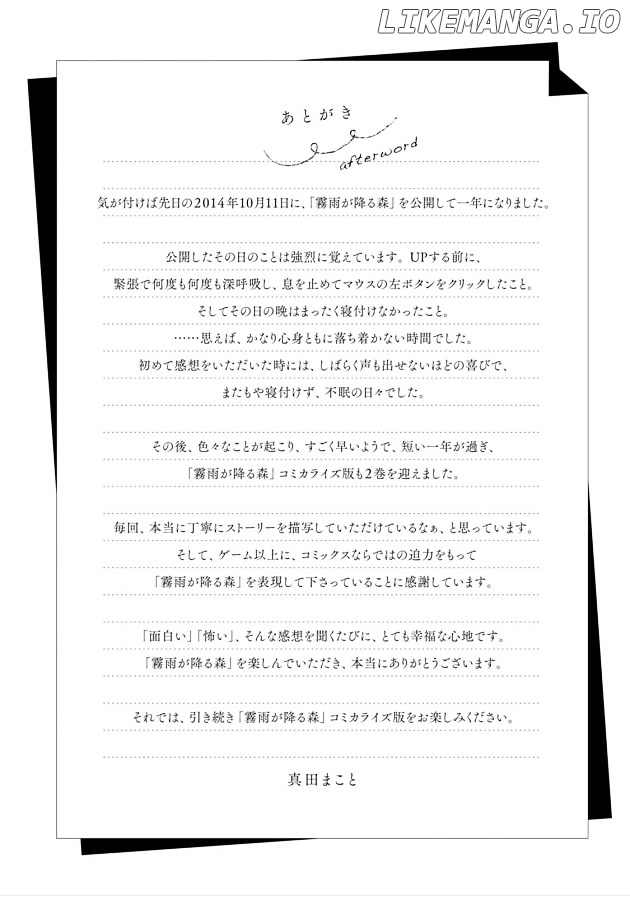 LIKEMANGA.IO
あとがき
afterword
気が付けば先日の2014年10月11日に、「霧雨が降る森」を公開して一年になりました。
公開したその日のことは強烈に覚えています。UPする前に、
緊張で何度も何度も深呼吸し、息を止めてマウスの左ボタンをクリックしたこと。
そしてその日の晩はまったく寝付けなかったこと。
……思えば、かなり心身ともに落ち着かない時間でした。
初めて感想をいただいた時には、しばらく声も出せないほどの喜びで、
またもや寝付けず、不眠の日々でした。
その後、色々なことが起こり、すごく早いようで、短い一年が過ぎ、
「霧雨が降る森」コミカライズ版も2巻を迎えました。
毎回、本当に丁寧にストーリーを描写していただけているなぁ、と思っています。
そして、ゲーム以上に、コミックスならではの迫力をもって
「霧雨が降る森」を表現して下さっていることに感謝しています。
「面白い」「怖い」、そんな感想を聞くたびに、とても幸福な心地です。
「霧雨が降る森」を楽しんでいただき、本当にありがとうございます。
それでは、引き続き「霧雨が降る森」コミカライズ版をお楽しみください。
真田まこと